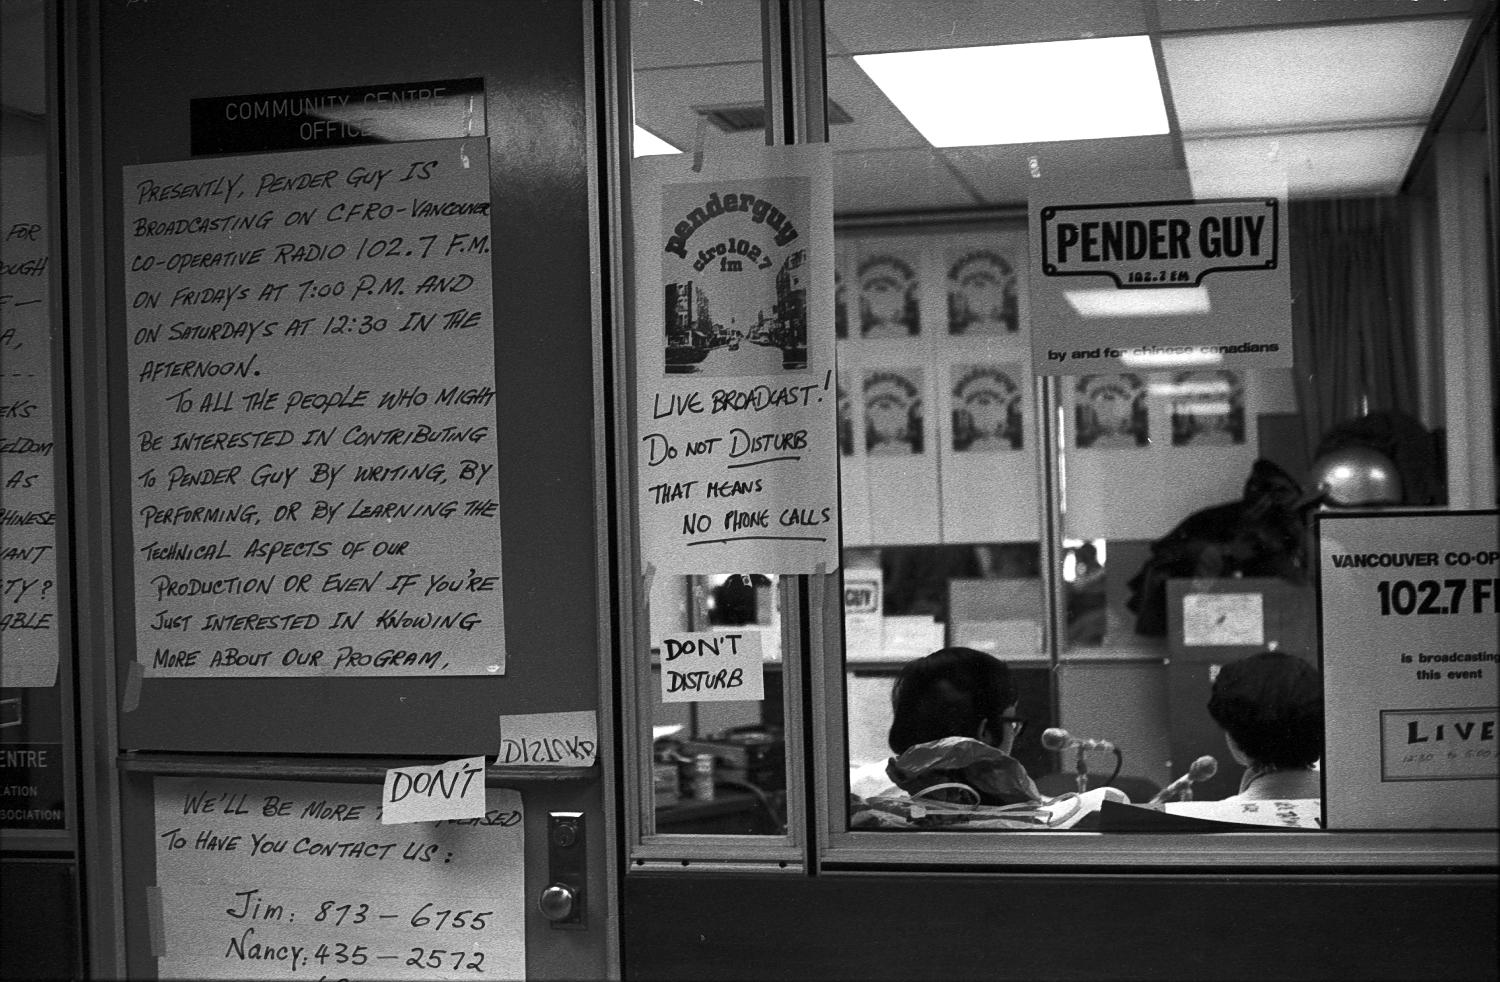 FOR
OUGH
E —
A,
EKS
ELDOM
AS
HINESE
ANT
TY?
ABLE
ENTRE
LATION
SOCIATION
COMMUNITY CENTRE
OFFICE
PRESENTLY, PENDER GUY IS
BROADCASTING ON CFRO-VANCOUVER
CO-OPERATIVE RADIO 102.7 F.M.
ON FRIDAYS AT 7:00 P.M. AND
ON SATURDAYS AT 12:30 IN THE
AFTERNOON.
TO ALL THE PEOPLE WHO MIGHT
BE INTERESTED IN CONTRIBUTING
TO PENDER GUY BY WRITING, BY
PERFORMING, OR BY LEARNING THE
TECHNICAL ASPECTS OF OUR
PRODUCTION OR EVEN IF YOU'RE
JUST INTERESTED IN KNOWING
MORE ABOUT OUR PROGRAM,
DON'T
WE'LL BE MORE
TO HAVE YOU CONTACT US:
Jim: 873-6755
Nancy: 435-2572
penderguy
cfro 102.7
fm
LIVE BROADCAST!
DO NOT DISTURB
THAT MEANS
NO PHONE CALLS
DON'T
DISTURB
PENDER GUY
102.7 FM
by and for chinese canadians
GUY
VANCOUVER CO-OP
102.7 F
is broadcasting
this event
LIVE